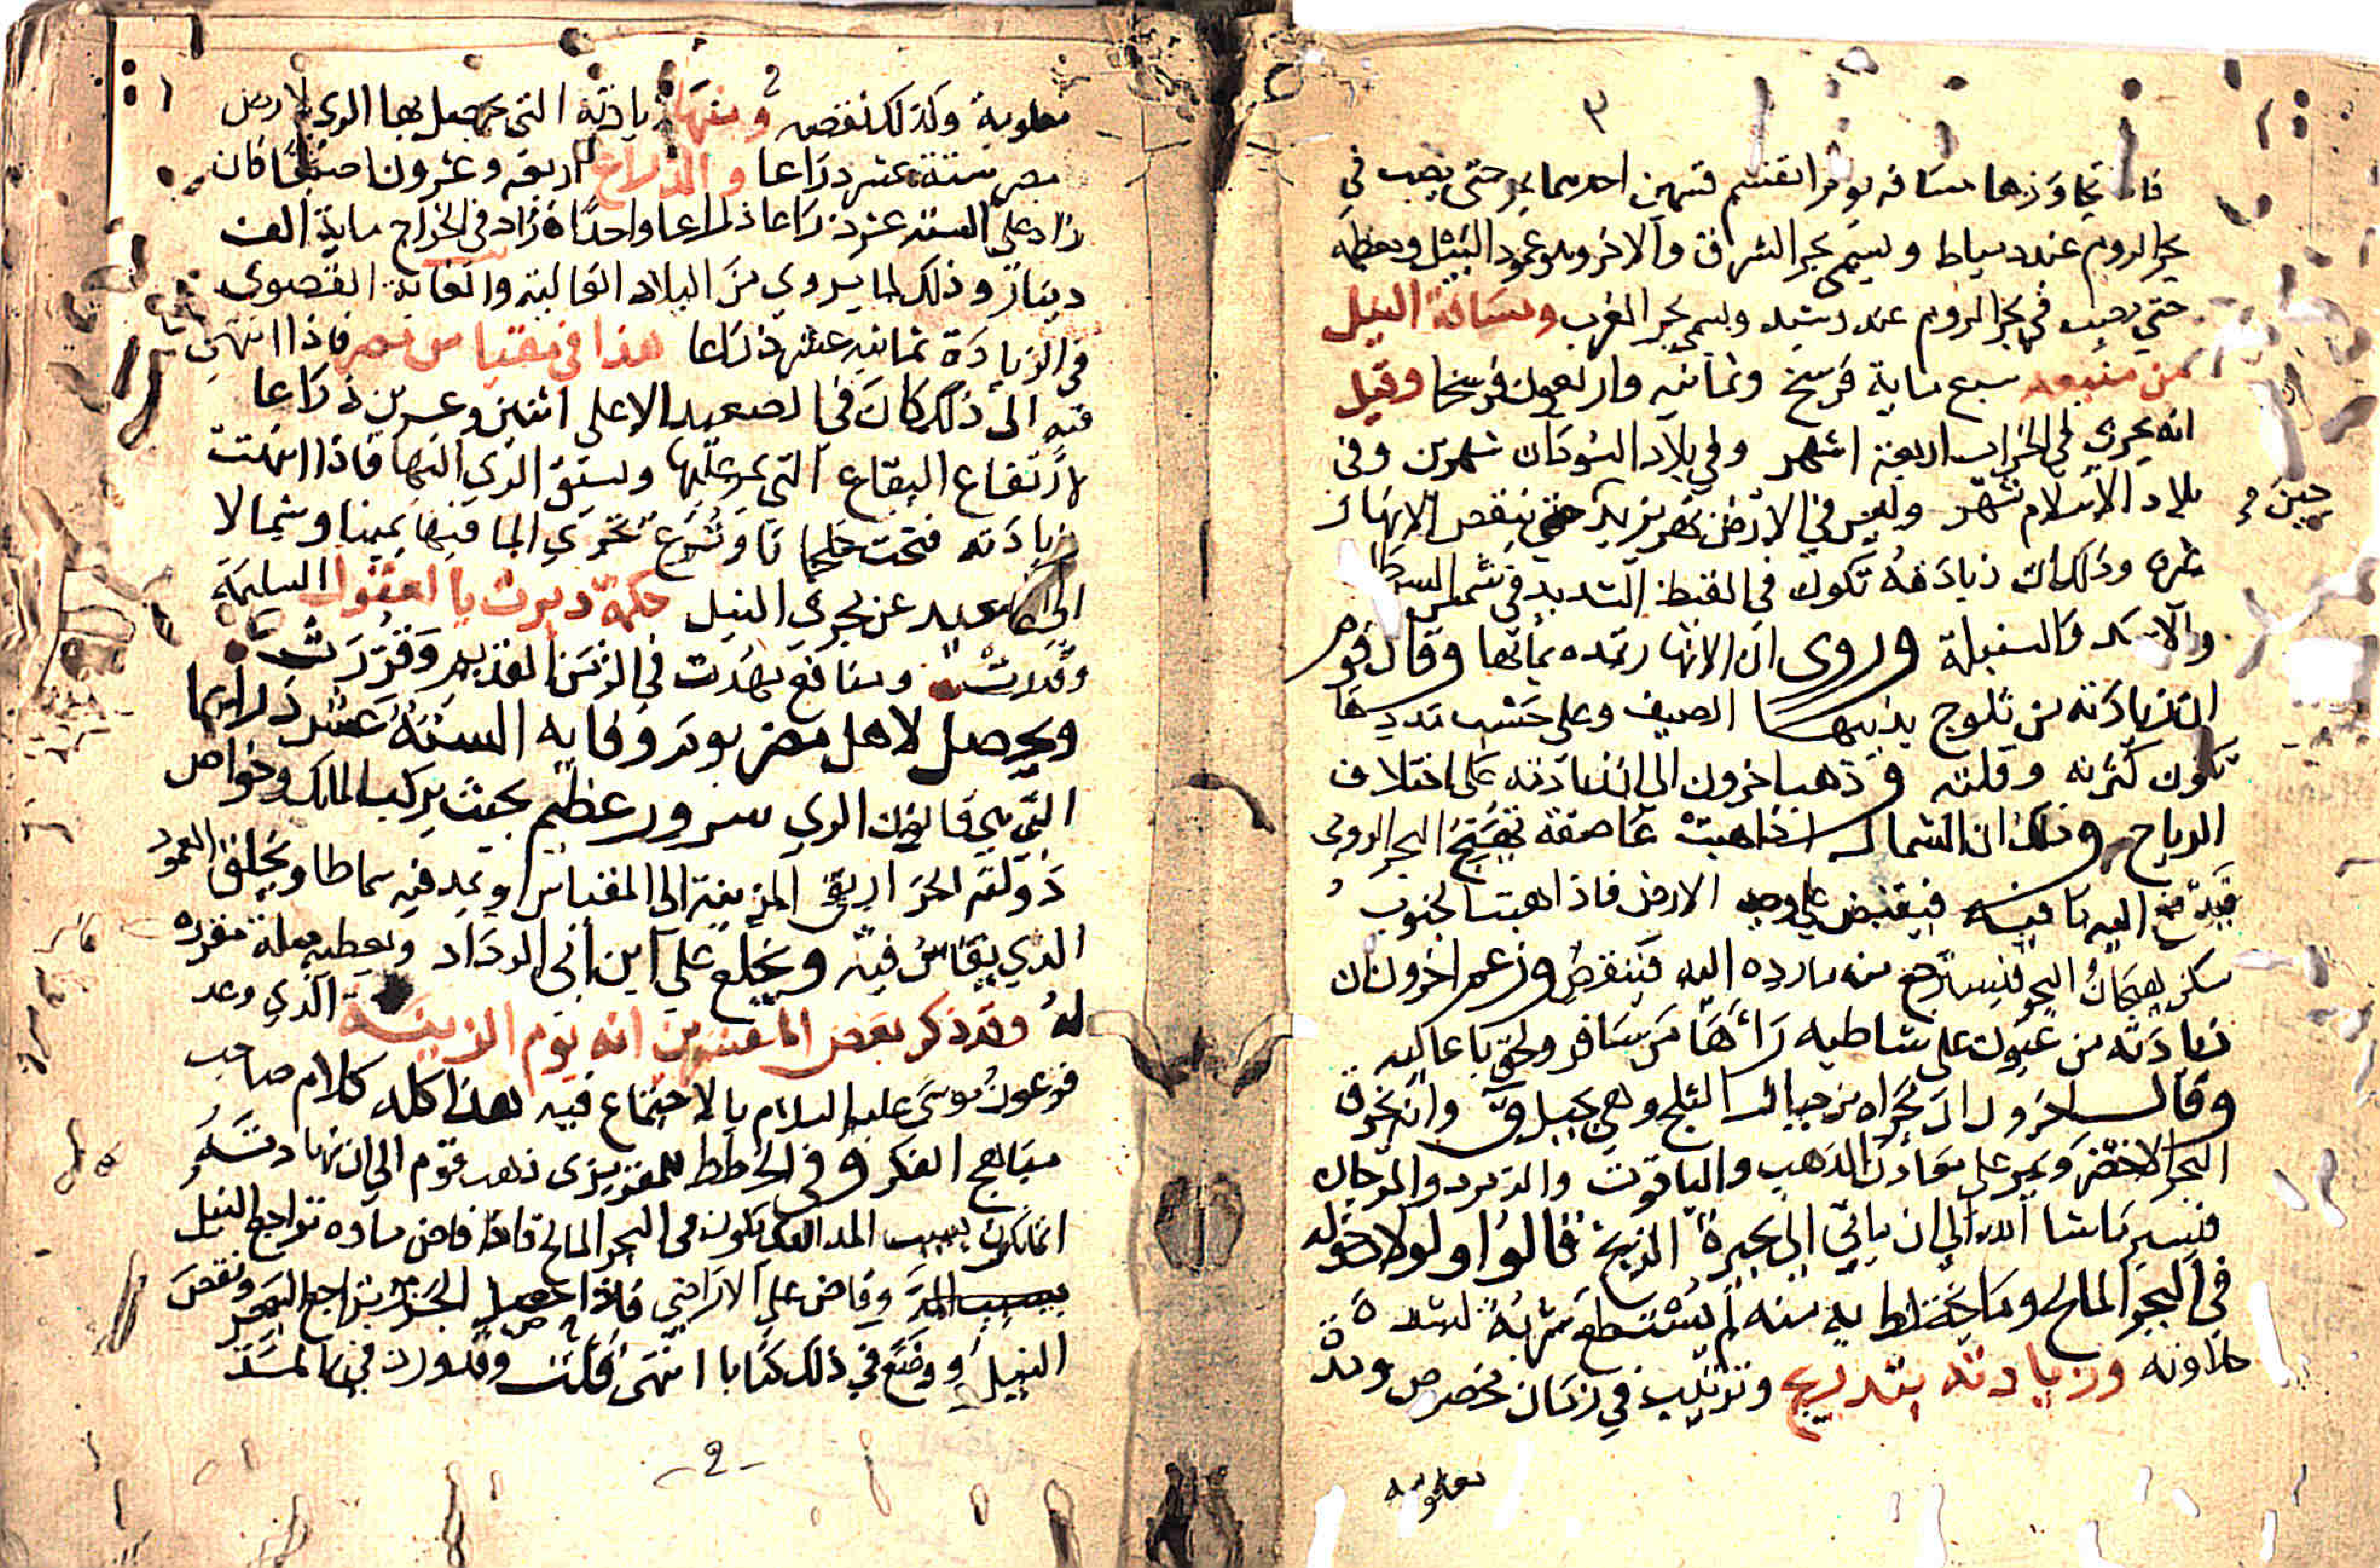 ٣
فاذا تجاوزها مسافه يوم انقسم قسمين احدهما يمر حتى يصب في
بحر الروم عند دمياط ويسمى بحر الشرق والاخر وهو عمود النيل ومعظمه
حتي يصب في بحر الروم عند رشيد ويسمى بحر الغرب ومسافة النيل
من منبعه سبع ماية فرسخ وثمانيه واربعون فرسخا وقيل
انه يجري في الخراب اربعة اشهر وفي بلاد السودان شهرين وفي
بلاد الاسلام شهر وليس في الارض نهر يزيد حتي ينقص الانهار
حين م
غيره وذلك ان زيادته تكون في القيظ الشديد في شمس السرطان
والاسد والسنبلة وروى ان الانهار تمده بمائها وقال قوم
ان زيادته من ثلوج يذيبها الصيف وعلى حسب مددها
تكون كثرته وقلته وذهب اخرون الى ان زيادته على اختلاف
الرياح وذلك ان الشمال اذا هبت عاصفة يهيج البحر الرومى
فيدفع اليه ما فيه فيقبض علي وجه الارض فاذا هبت الجنوب
سكن هيجان البحر فيسترجع منه ما رده اليه فينقص وزعم اخرون ان
زيادته من عيون على شاطيه راها من سافر ولحق باعاليه
وقال اخرون ان مجراه من جبال الثلج وهي بجبل ق وانه يخرق
البحر الاخضر ويمر على معادن الذهب والياقوت والزمرد والمرجان
فيسير ماشا الله الى ان ياتي الى بحيرة الزنج قالوا ولولا دخوله
في البحر المالح وما يختلط به منه لم يستطع شربه لشدة
حلاوته وزيادته بتدريج وترتيب في زمان مخصوص ومدة
معلومه
معلومة وكذلك نقصه ومنها زيادته التي يحصل بها الري لارض
مصر ستة عشر ذراعا والذراع اربعة وعشرون اصبعا فان
زاد على الستة عشر ذراعا ذراعا واحدا زاد في الخراج ماية الف
دينار وذلك لما يروي من البلاد العالية والغاية القصوى
في الزيادة ثمانيه عشر ذراعا هذا في مقياس مصر فاذا انتهى
فيه الى ذلك كان في الصعيد الاعلى اثنين وعشرين ذراعا
لارتفاع البقاع التي يمر عليها ويسبق الذي اليها فاذا انتهت
زيادته فتحت خلجا نا وترع تجري الما فيها يمينا وشمالا
الى البعيد عن مجرى النيل حكمة دبرت بالعقول السليمة
وقدرت ومنافع مهدت في الزمن القديم وقررت
ويحصل لاهل مصر يوم وفايه الستة عشر ذراعا
التي هي قانون الري سرور عظيم بحيث يركب الملك وخواص
دولته الحراريق المزينة الى المقياس ويمد فيه سماطا ويخلق العمود
الذي يقاس فيه ويخلع على ابن أبي الرداد ويعطيه صلة مقررة
له وقد ذكر بعض المفسرين انه يوم الزينة الذي وعد
فرعون موسى عليه السلام بالاجتماع فيه هذا كله كلام صاحب
مباهج الفكر وفي الخطط للمقريزى ذهب قوم الى ان زيادته
انما تكون بسبب المد الذي يكون في البحر المالح فاذا فاض ماوه تراجع النيل
بسبب المد وفاض على الاراضي فاذا حصل الجزر تراجع البحر ونقص
النيل ووضع في ذلك كتابا انتهى قلت وقد ورد في المسند
-٢-